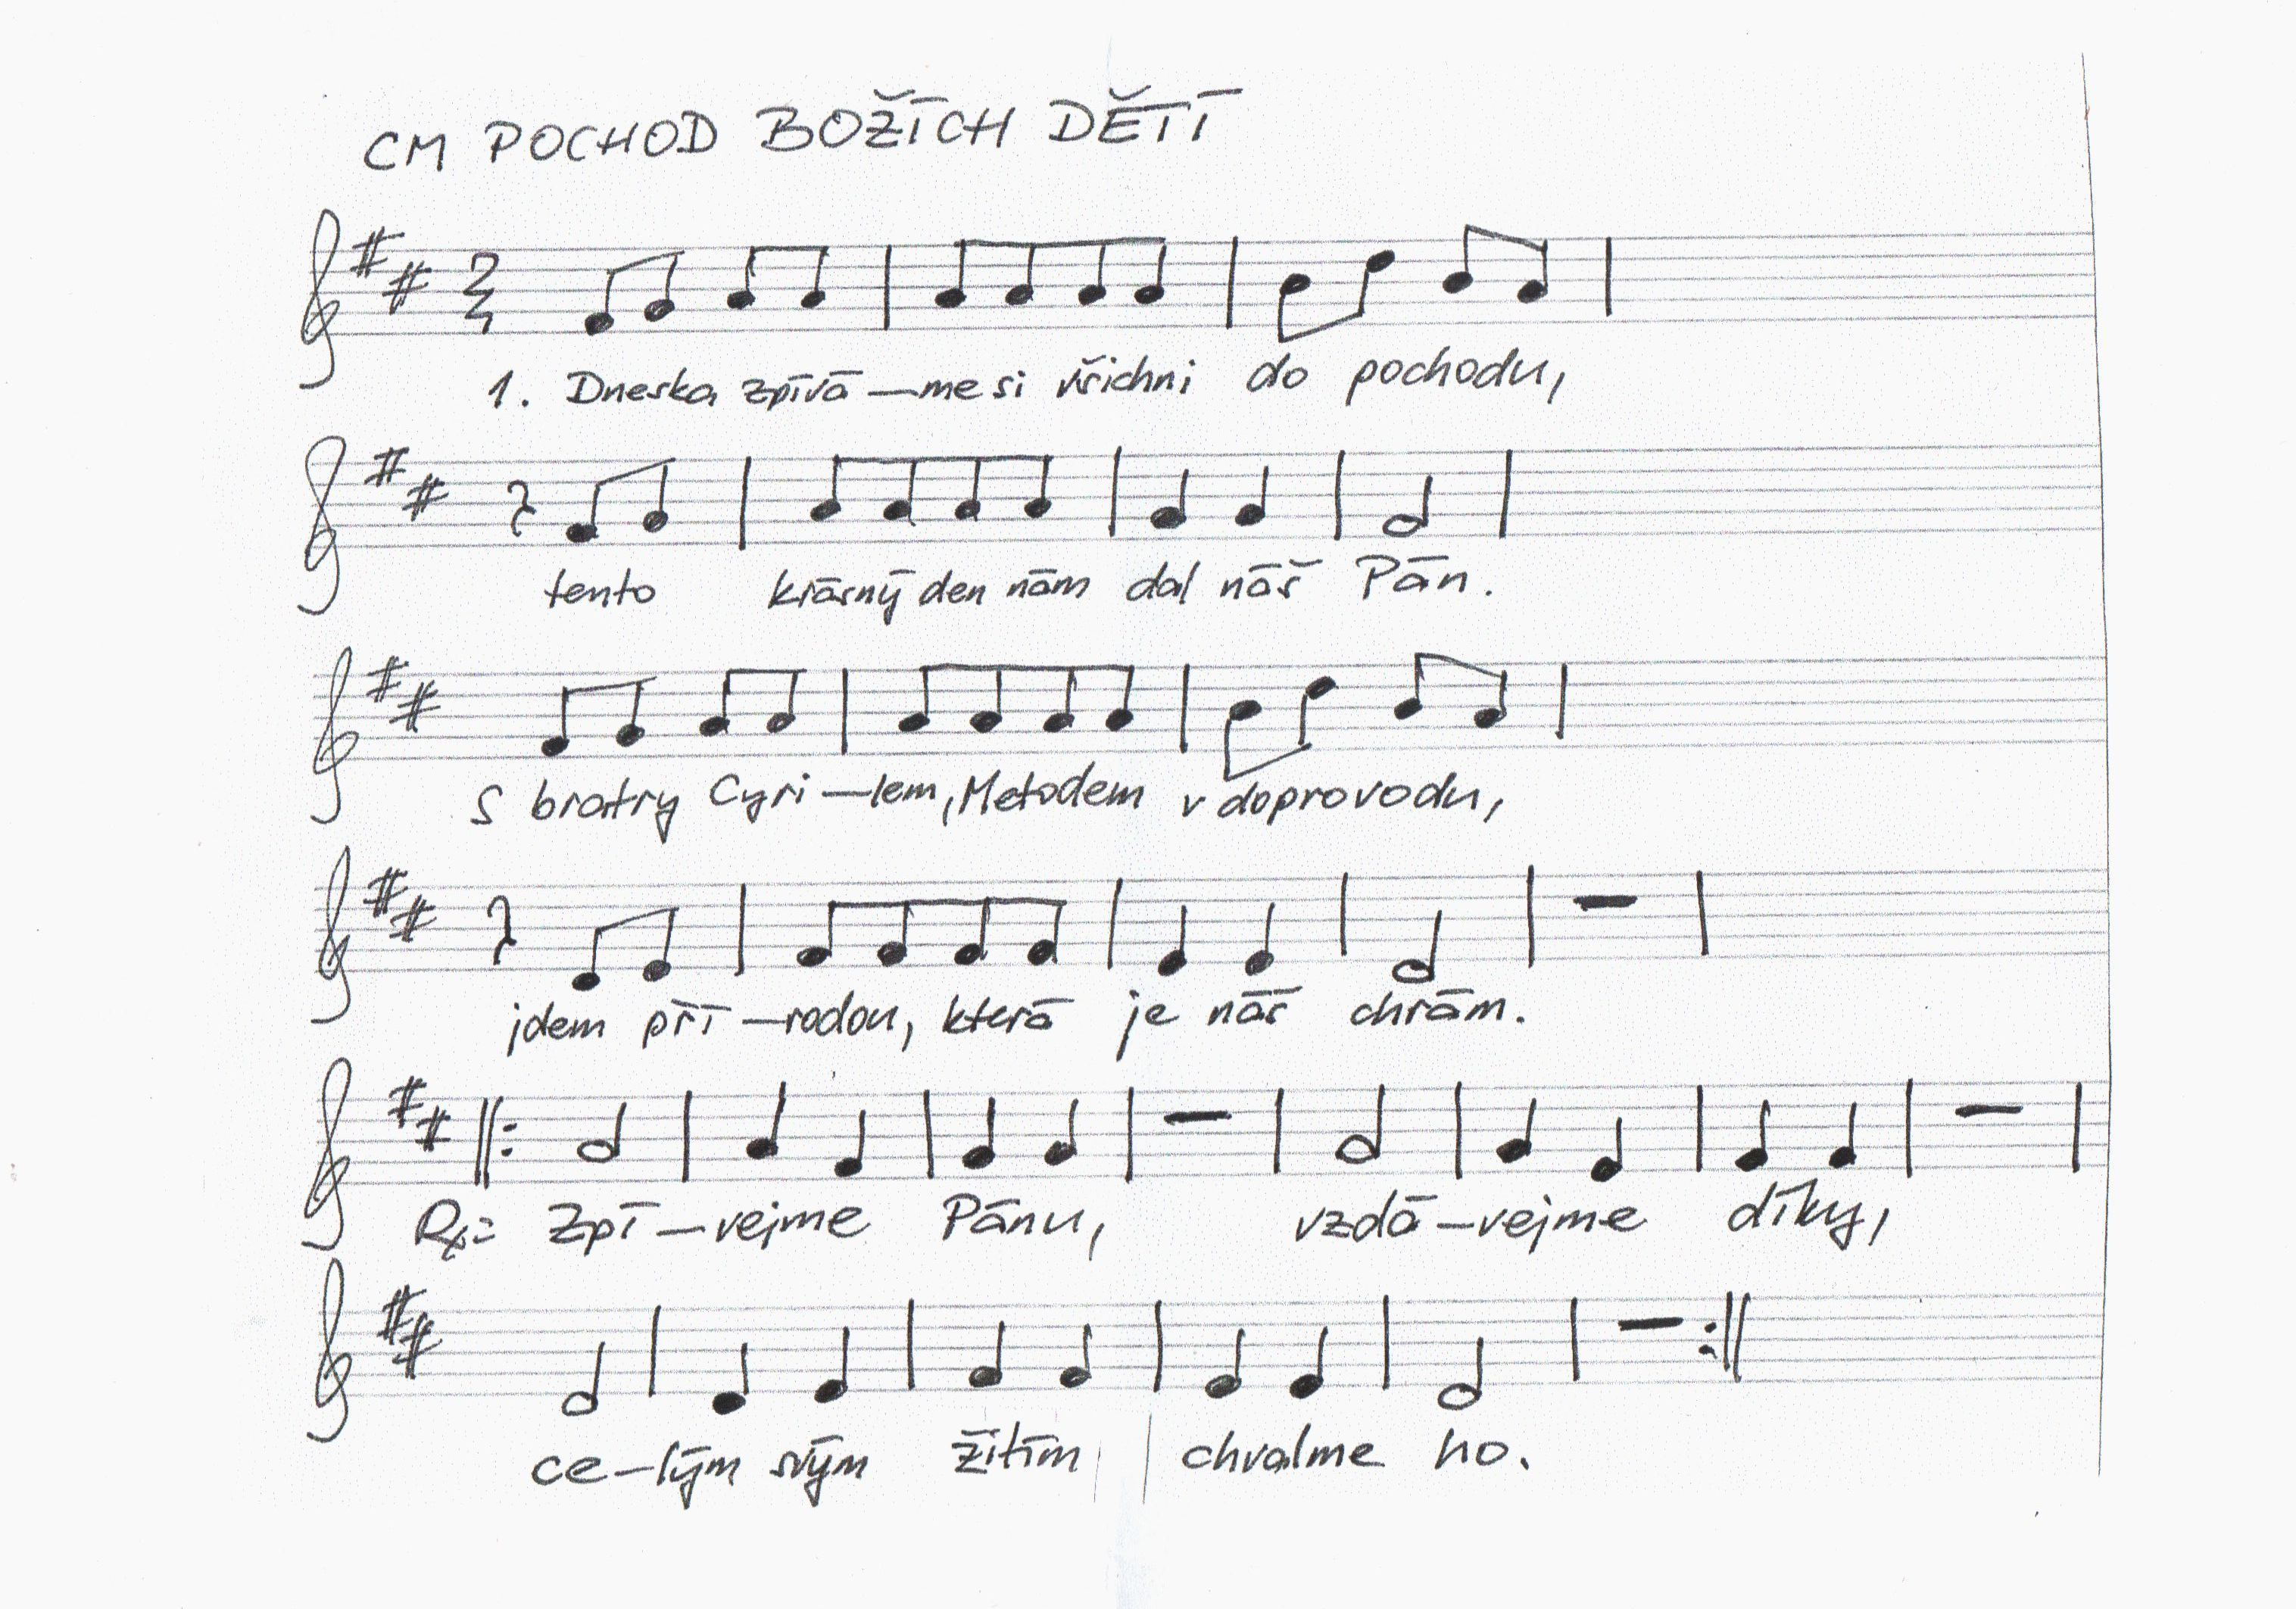 CM POCHOD BOŽÍCH DĚTÍ
1. Dneska zpívá – me si všichni do pochodu,
tento krásný den nám dal náš Pán.
S bratry Cyri – lem, Metodem v doprovodu,
jdem pří – rodou, která je náš chrám.
R: Zpí – vejme Pánu, vzdá – vejme díky,
ce – lým svým žitím chvalme ho.